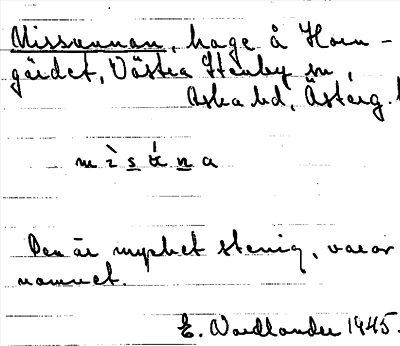 Missunnan, hage å Horn-
gärdet, Västra Stenby sn,
Aska hd, Österg.
Den är mycket stenig, varav
namnet.
E. Nordlander 1945.